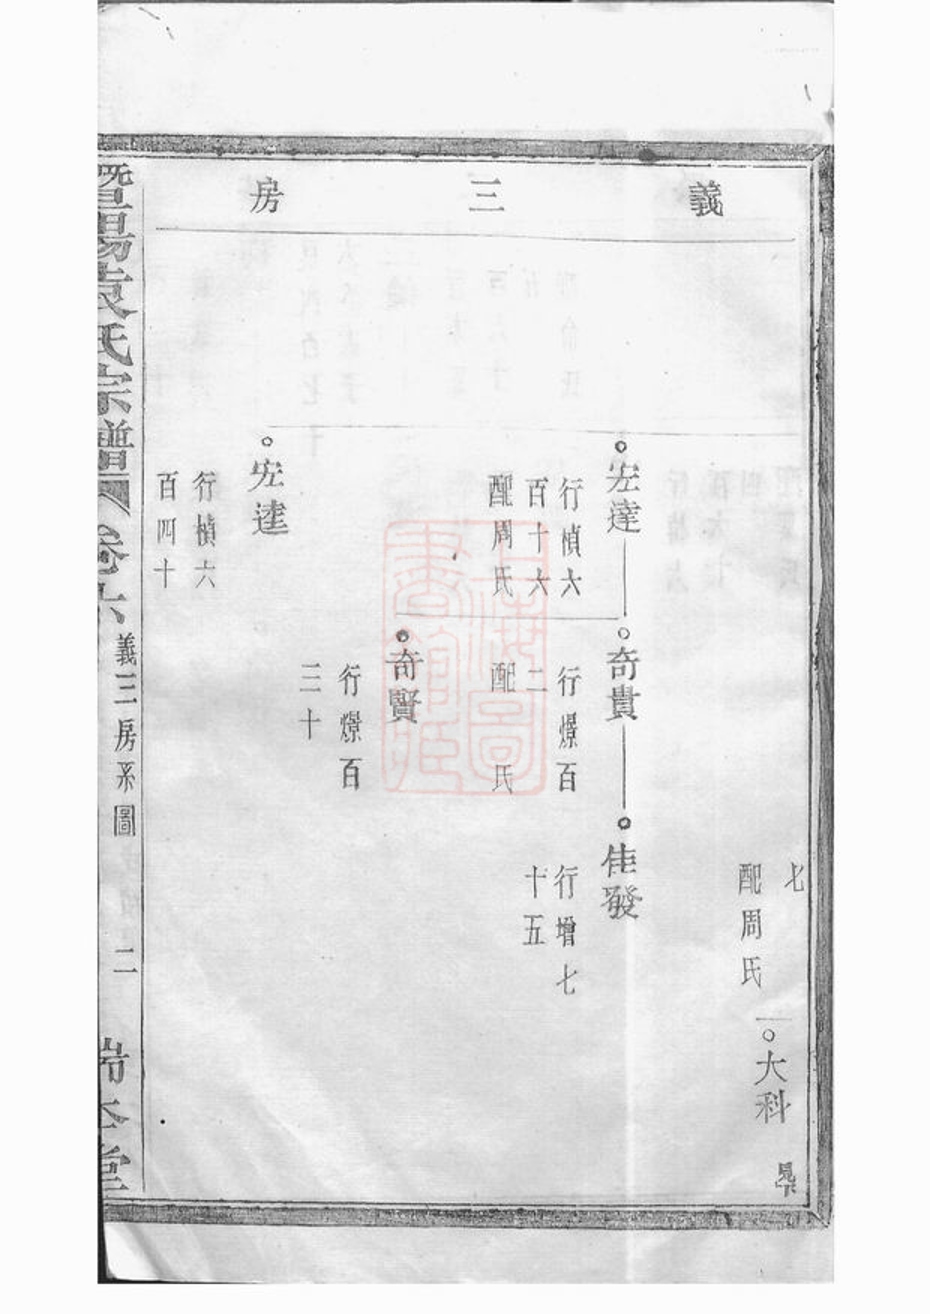 義三房
七
配周氏
大科
宏達
行楨六
百十六
配周氏
奇貴
行爃百
二
配 氏
佳發
行增七
十五
奇賢
行爃百
三十
宏達
行楨六
百四十
暨陽袁氏宗譜 卷六 義三房系圖 二